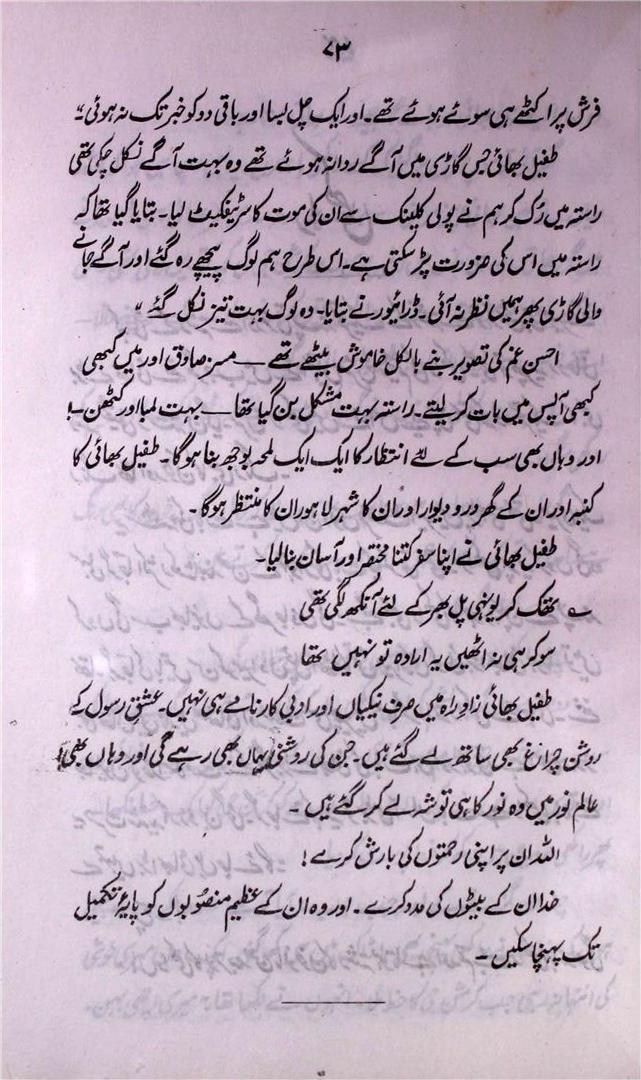 ۷۳
فرش پر اکٹھے ہی سوئے ہوئے تھے۔ اور ایک چل بسا اور باقی دو کو خبر تک نہ ہوئی۔"
طفیل بھائی جس گاڑی میں آگے روانہ ہوئے تھے وہ بہت آگے نکل چکی تھی
راستہ میں رُک کر ہم نے پولی کلینک سے ان کی موت کا سرٹیفکیٹ لیا۔ بتایا گیا تھا کہ
راستہ میں اس کی ضرورت پڑ سکتی ہے۔ اس طرح ہم لوگ پیچھے رہ گئے اور آگے جانے
والی گاڑی پھر ہمیں نظر نہ آئی۔ ڈرائیور نے بتایا۔ وہ لوگ بہت تیز نکل گئے "
احسن غم کی تصویر بنے بالکل خاموش بیٹھے تھے ــــ مسز صادق اور میں کبھی
کبھی آپس میں بات کر لیتے۔ راستہ بہت مشکل بن گیا تھا ــــ بہت لمبا اور کٹھن ــ!
اور وہاں بھی سب کے لئے انتظار کا ایک ایک لمحہ بوجھ بنا ہو گا۔ طفیل بھائی کا
کنبہ اور ان کے گھر در و دیوار اور ان کا شہر لاہور ان کا منتظر ہو گا۔
طفیل بھائی نے اپنا سفر کتنا مختصر اور آسان بنا لیا۔
؎ تھک کر یونہی پل بھر کے لئے آنکھ لگی تھی
سو کر ہی نہ اٹھیں یہ ارادہ تو نہیں تھا
طفیل بھائی زادِ راہ میں صرف نیکیاں اور ادبی کارنامے ہی نہیں۔ عشقِ رسول کے
روشن چراغ بھی ساتھ لے گئے ہیں۔ جن کی روشنی یہاں بھی رہے گی اور وہاں بھی!
عالمِ نور میں وہ نور کا ہی توشہ لے کر گئے ہیں ۔
اللہ ان پر اپنی رحمتوں کی بارش کرے!
خدا ان کے بیٹوں کی مدد کرے ۔ اور وہ ان کے عظیم منصوبوں کو پایۂ تکمیل
تک پہنچا سکیں ۔